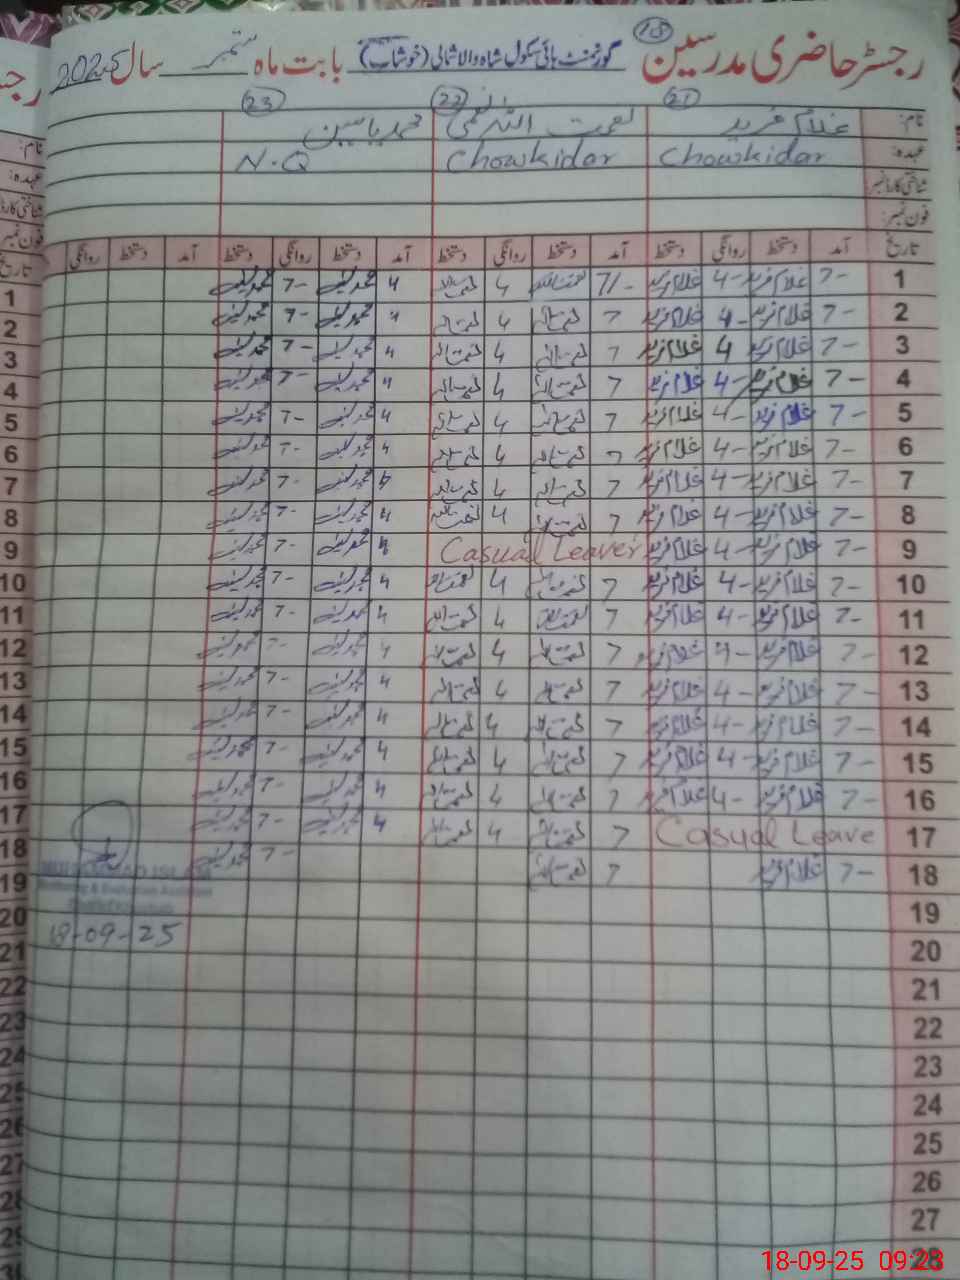 15
رجسٹر حاضری مدرسین گورنمنٹ ہائی سکول شاہ والا شمالی (خوشاب) بابت ماہ ستمبر سال 2025
21 22 23
نام: غلام فرید نعمت اللہ نعیمی محمد یاسین
عہدہ: Chowkidar Chowkidar N.Q
شناختی کارڈ نمبر
فون نمبر:
تاریخ آمد دستخط روانگی دستخط آمد دستخط روانگی دستخط آمد دستخط روانگی دستخط آمد دستخط روانگی
1 7- غلام فرید 4- غلام فرید 7/- نعمت اللہ 4 نعمت اللہ 4 محمد یاسین 7- محمد یاسین
2 7- غلام فرید 4- غلام فرید 7 نعمت اللہ 4 نعمت اللہ 4 محمد یاسین 7- محمد یاسین
3 7- غلام فرید 4 غلام فرید 7 نعمت اللہ 4 نعمت اللہ 4 محمد یاسین 7- محمد یاسین
4 7- غلام فرید 4- غلام فرید 7 نعمت اللہ 4 نعمت اللہ 4 محمد یاسین 7- محمد یاسین
5 7- غلام فرید 4- غلام فرید 7 نعمت اللہ 4 نعمت اللہ 4 محمد یاسین 7- محمد یاسین
6 7- غلام فرید 4- غلام فرید 7 نعمت اللہ 4 نعمت اللہ 4 محمد یاسین 7- محمد یاسین
7 7- غلام فرید 4- غلام فرید 7 نعمت اللہ 4 نعمت اللہ 4 محمد یاسین 7- محمد یاسین
8 7- غلام فرید 4- غلام فرید 7 نعمت اللہ 4 نعمت اللہ 4 محمد یاسین 7- محمد یاسین
9 7- غلام فرید 4- غلام فرید Casual Leave 4 محمد یاسین 7- محمد یاسین
10 7- غلام فرید 4- غلام فرید 7 نعمت اللہ 4 نعمت اللہ 4 محمد یاسین 7- محمد یاسین
11 7- غلام فرید 4- غلام فرید 7 نعمت اللہ 4 نعمت اللہ 4 محمد یاسین 7- محمد یاسین
12 7- غلام فرید 4- غلام فرید 7 نعمت اللہ 4 نعمت اللہ 4 محمد یاسین 7- محمد یاسین
13 7- غلام فرید 4- غلام فرید 7 نعمت اللہ 4 نعمت اللہ 4 محمد یاسین 7- محمد یاسین
14 7- غلام فرید 4- غلام فرید 7 نعمت اللہ 4 نعمت اللہ 4 محمد یاسین 7- محمد یاسین
15 7- غلام فرید 4- غلام فرید 7 نعمت اللہ 4 نعمت اللہ 4 محمد یاسین 7- محمد یاسین
16 7- غلام فرید 4- غلام فرید 7 نعمت اللہ 4 نعمت اللہ 4 محمد یاسین 7- محمد یاسین
17 Casual Leave 7 نعمت اللہ 4 نعمت اللہ 4 محمد یاسین 7- محمد یاسین
18 7- غلام فرید 7 نعمت اللہ 7- محمد یاسین
MUHAMMAD ISLAM
Monitoring & Evaluation Assistant
18-09-25
19
20
21
22
23
24
25
26
27
28
18-09-25 09:23